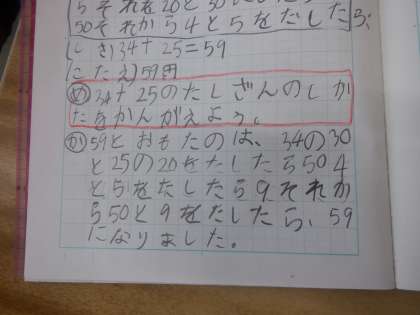 5 それを20と30にした
50それから4と5をだしたら、
しき)34+25=59
こたえ)59円
め 34+25のたしざんのしか
たをかんがえよう。
か 59とおもたのは、34の30
と25の20をたしたら504
と5をたしたら9それか
ら50と9をたしたら、59
になりました。